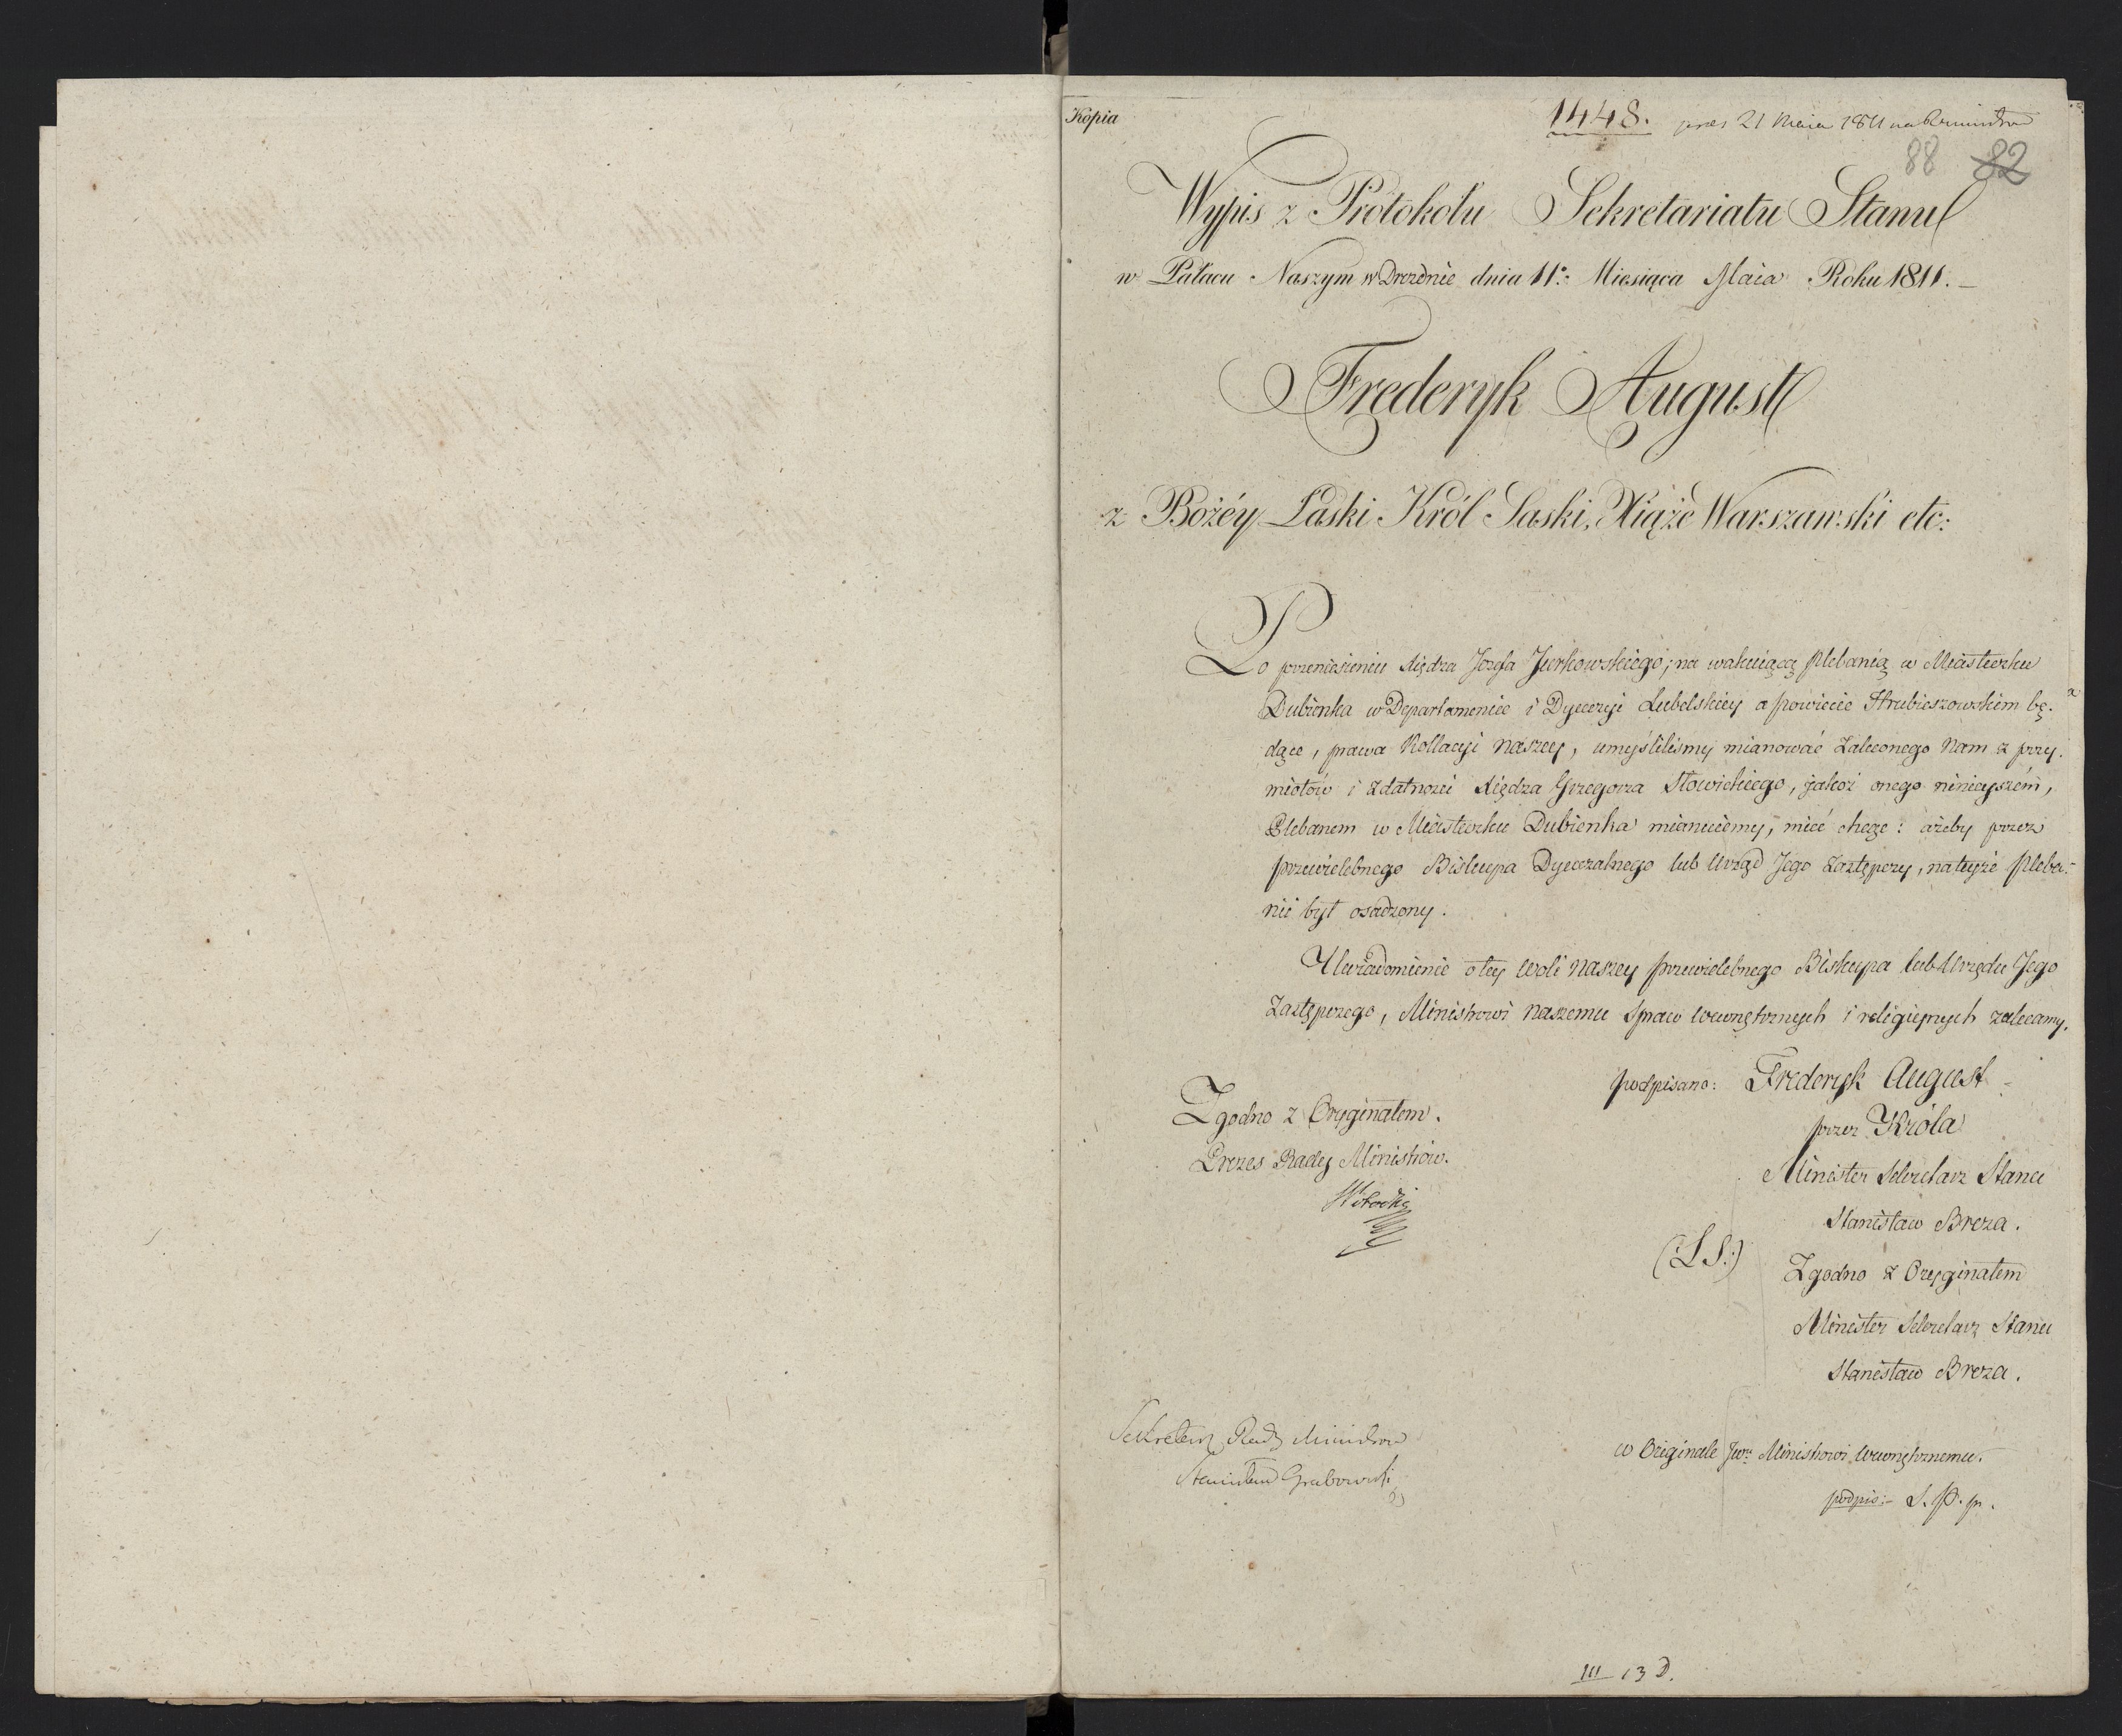 Kopia
1448. prez 21 Maia 1811 na R. Ministrów
88 82
Wypis z Protokołu Sekretariatu Stanu
w Pałacu Naszym w Dreźnie dnia 11º Miesiąca Maia Roku 1811. –
Frederyk August
z Bożéy Łaski Król Saski, Xiąże Warszawski etc:
Po przeniesieniu Xiędza Jozefa Jurkowskiego, na wakuiącą Plebanią w Miasteczku
Dubienka w Departamencie i Dyecezyi Lubelskiey a powiecie Hrubieszowskim bę-
dące, prawa Kollacyi naszey, umyśliliśmy mianować zaleconego Nam z przy-
miotów i zdatności Xiędza Grzegorza Słowickiego, jakoż onego ninieyszém,
Plebanem w Miasteczku Dubienka mianuiemy, mieć chcąc: ażeby przez
przewielebnego Biskupa Dyecezalnego lub Urząd Jego Zastępczy, na teyże Pleba-
nii był osadzony.
Uwiadomienie o tey woli naszey przewielebnego Biskupa lub Urzędu Jego
Zastępczego, Ministrowi naszemu Spraw wewnętrznych i religiynych zalecamy.
podpisano: Frederyk August
przez Króla
Minister Sekretarz Stanu
Stanisław Breza.
(:L.S.:)
Zgodno z Oryginałem
Minister Sekretarz Stanu
Stanisław Breza.
Zgodno z Oryginałem.
Prezes Rady Ministrów.
Sekretarz Rady Ministrów
Stanisław Grabowski
w Originale Jwu Ministrowi wewnętrznemu.
podpis:- S. P. p.
III 13 D.